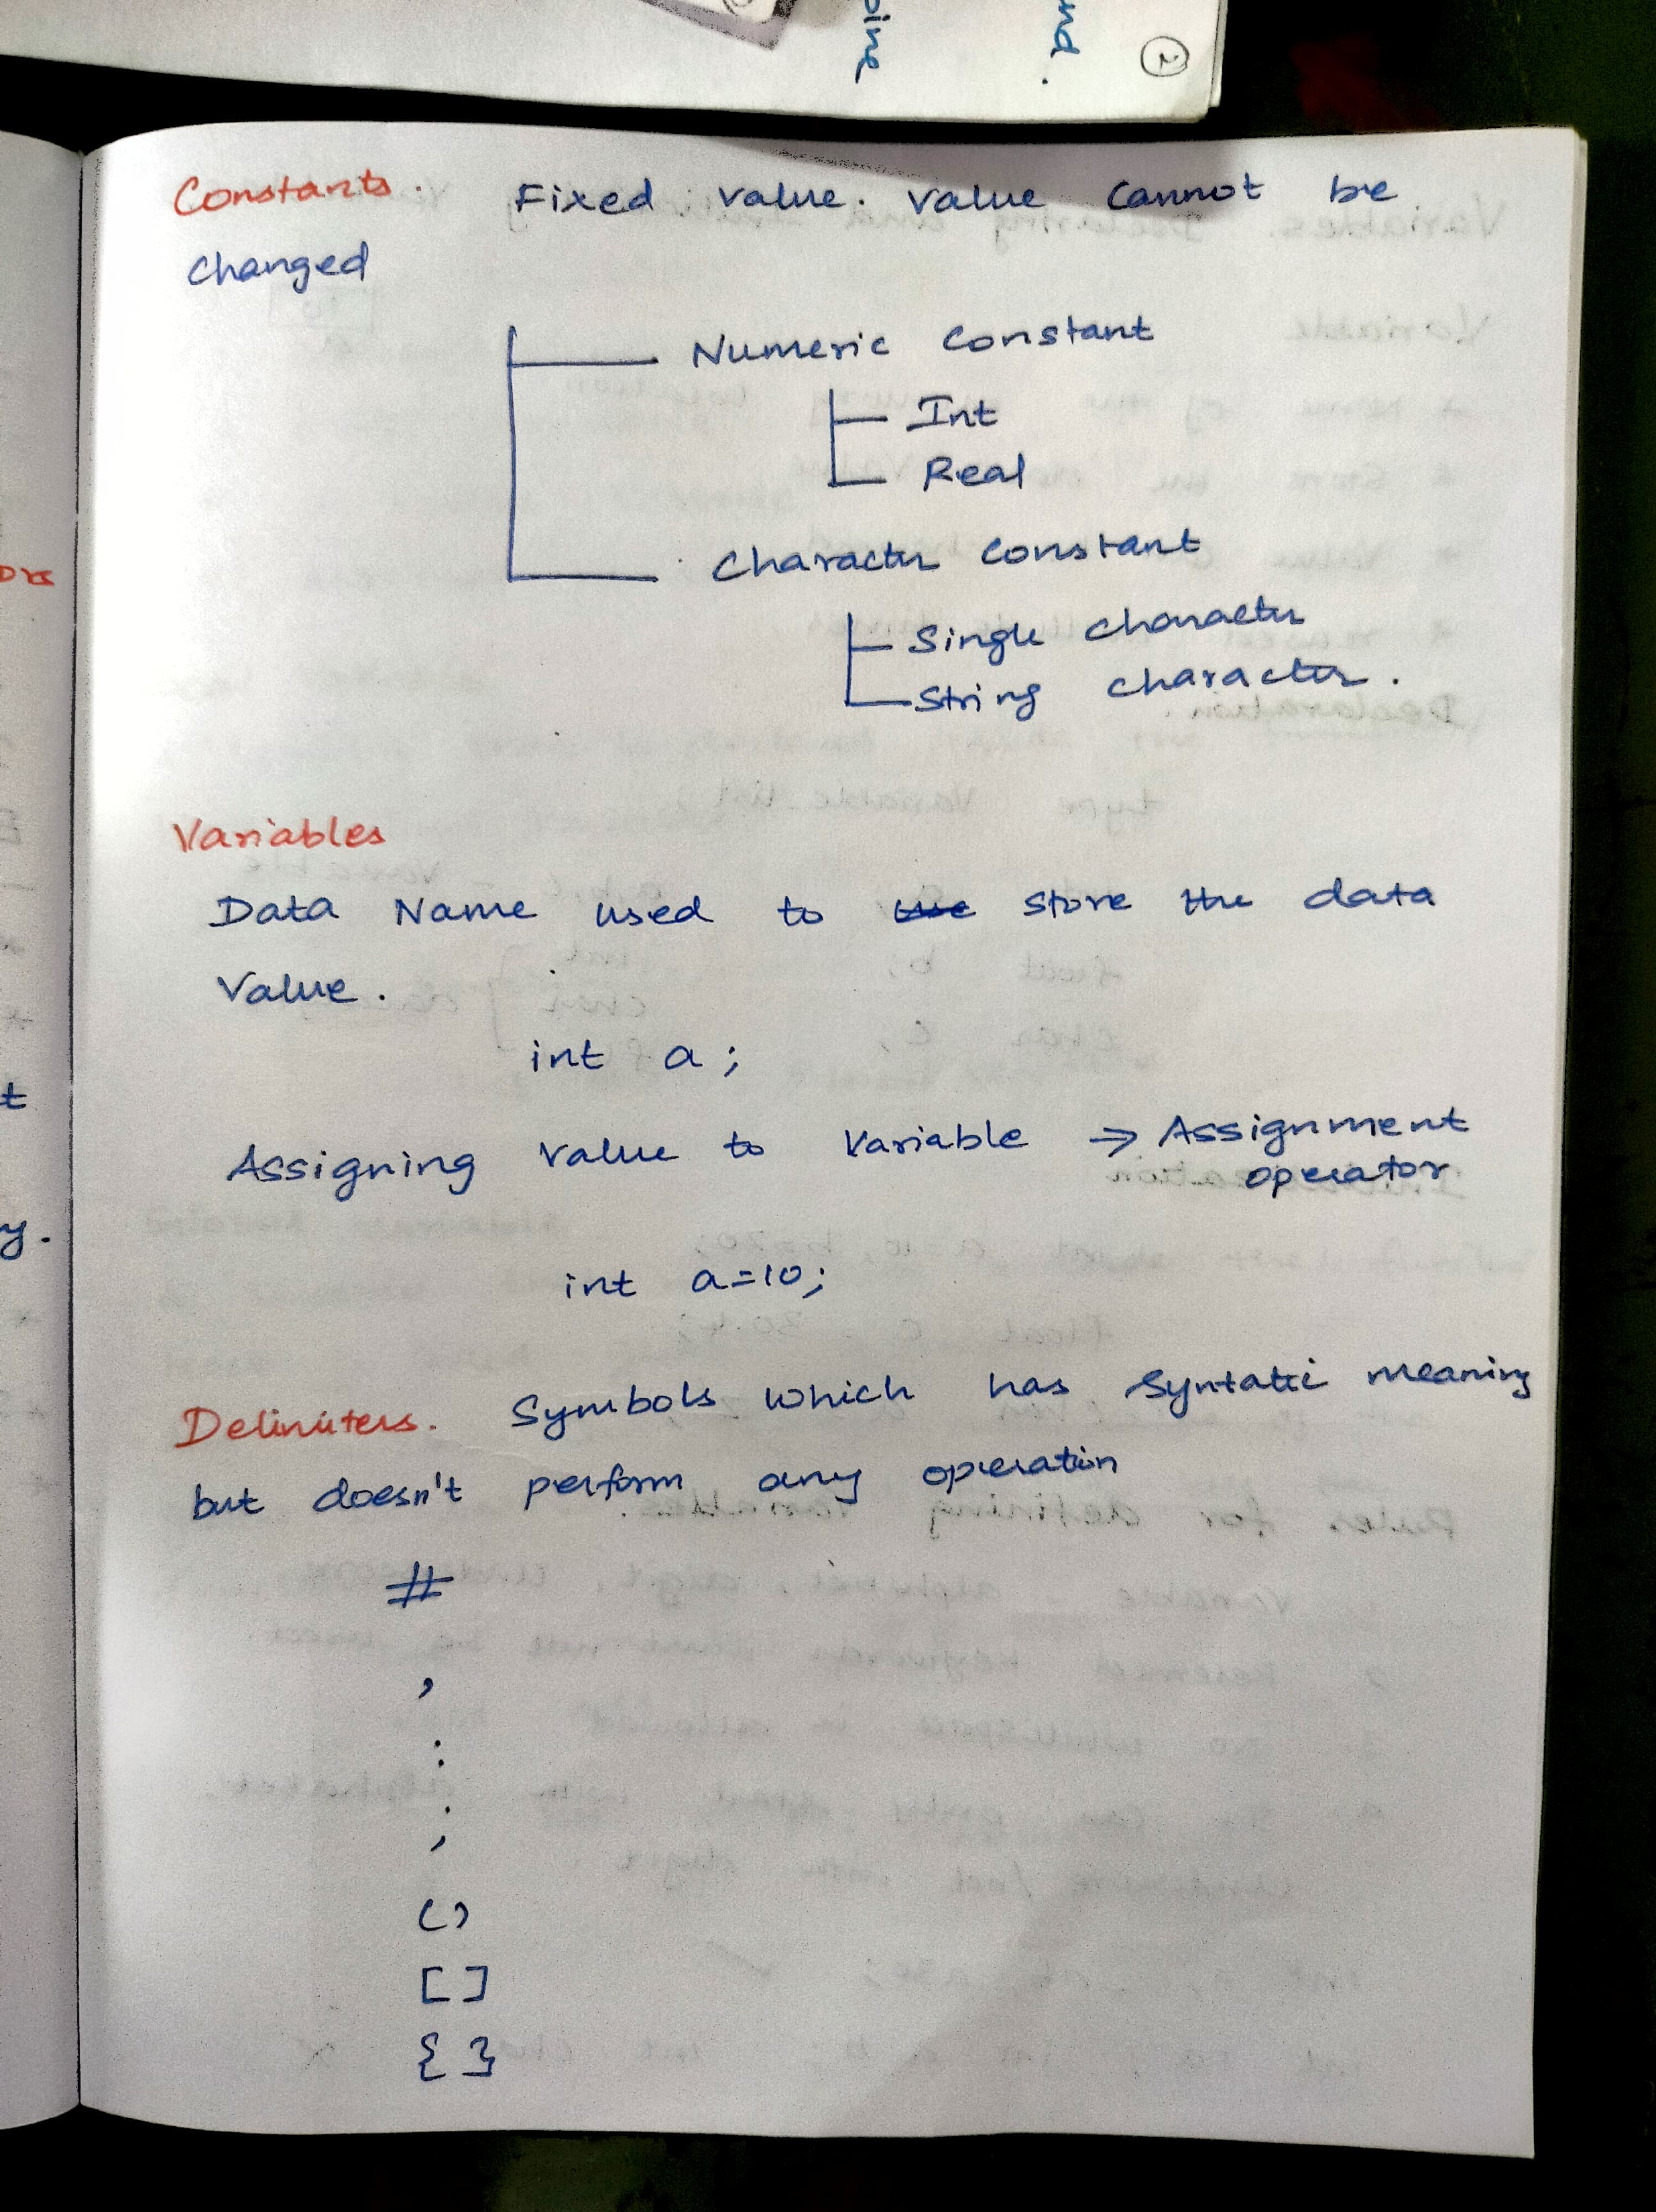 ound.
pine
2
Constants. Fixed value. Value cannot be
changed
Numeric Constant
Int
Real
Character Constant
Single character
String character.
Variables
Data Name used to use store the data
Value.
int a;
Assigning value to Variable → Assignment
operator
int a=10;
Delimiters. Symbols which has Syntatic meaning
but doesn't perform any operation
#
,
:
;
()
[]
{}
ors
t
y.